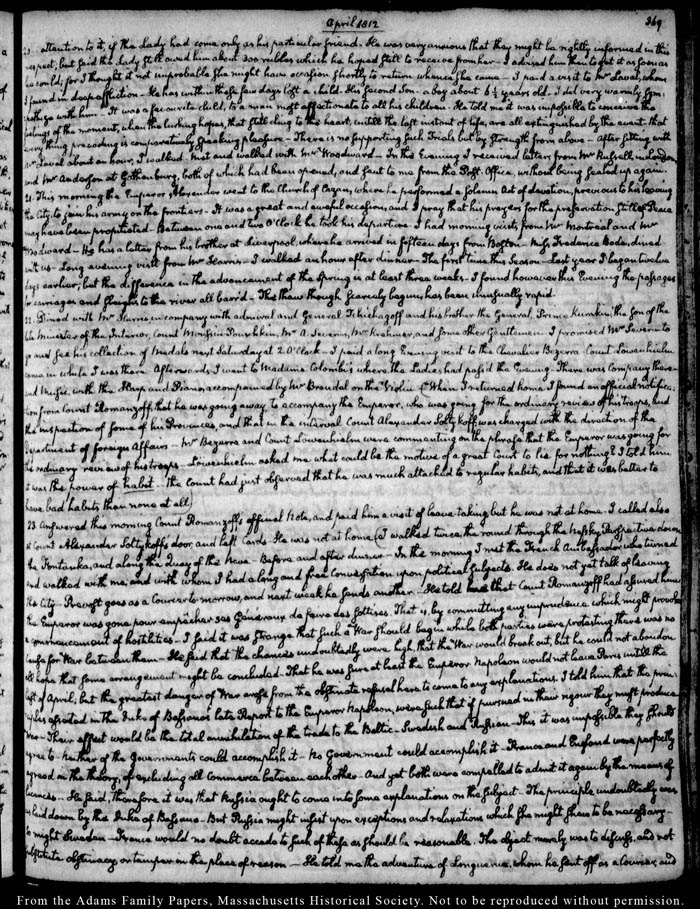 April 1812
369
attention to it, if the Lady had come only as his particular friend. He was very anxious that they might be rightly informed in this
respect, but said the Lady still owed him about 300 rubles which he hoped still to receive from her. I advised him then to get it as soon as
he could; for I thought it not improbable she might have occasion shortly to return whence she came. I paid a visit to Mr Laval, whom
I found in deep affliction. He has within these few days lost a child. His second Son. a boy about 6½ years old. I did very warmly sym-
pathize with him. It was a favourite child, to a man most affectionate to all his children. He told me it was impossible to conceive the
feelings of the moment, when the lurking hopes, that still cling to the heart, untill the last instant of life, are all extinguished by the event that
every thing preceding is comparatively speaking pleasure. There is no supporting such trials but by strength from above. After sitting with
Mr Laval about an hour, I walked. Met and walked with Mr Woodward. In the Evening I received letters from Mr Russell in London
and Mr Anderson at Gothenburg, both of which had been opened, and sent to me from the Post-Office, without being sealed up again.
21. This morning the Emperor Alexander went to the Church of Cazan, where he performed a solemn Act of devotion, previous to his leaving
the City, to join his army on the frontiers. It was a great and awful occasion, and I pray that his prayers for the preservation still of Peace
may have been propitiated. Between one and two O'Clock he took his departure. I had morning visits from Mr Montreal and Mr
Woodward. He has a letter from his brother at Liverpool, where he arrived in fifteen days from Boston. Miss Frederica Bode, dined
with us. Long evening visit from Mr Harris. I walked an hour after dinner. The first time this Season. Last year I began twelve
days earlier; but the difference in the advancement of the Spring is at least three weeks. I found however this Evening the passages
for carriages and sleighs to the river all barr'd. The thaw though scarcely begun, has been unusually rapid.
22. Dined with Mr Harris in company with admiral and General Tchichagoff and his brother the General, Prince Kurakin, the son of the
the Minister of the Interior, Count Moussin Poushkin, Mr A. Severin, Mr Krehmer, and some other Gentlemen. I promised Mr Severin to
go and see his collection of Medals next Saturday at 2. O'Clock. I paid a long Evening visit to the Chevalier Bezerra. Count Löwenhielm
came in while I was there. Afterwards, I went to Madame Colombi's where the Ladies had pass'd the Evening. There was Company there
and Music, with the Harp and Piano, accompanied by Mr Brandel on the Violin. When I returned home, I found an official notifica-
tion from Count Romanzoff, that he was going away to accompany the Emperor, who was going for the ordinary review of his troops, and
the inspection of some of his Provinces, and that in the interval Count Alexander Soltykoff was charged with the direction of the
Department of foreign Affairs. Mr Bezerra and Count Löwenhielm were commenting on the phrase that the Emperor was going for
the ordinary review of his troops. Löwenhielm asked me what could be the motive of a great Court to lie for nothing? I told him
it was the power of habit. The Count had just observed that he was much attached to regular habits, and that it was better to
have bad habits than none at all.
23. Answered this morning Count Romanzoff's official Note, and paid him a visit of leave taking but he was not at home. I called also
at Count Alexander Soltykoff's door, and left Cards. He was not at home. I walked twice, the round through the Nefsky Perspective down
the Fontanka, and along the Quay of the Neva. Before and after dinner. In the morning I met the French Ambassador who turned
and walked with me, and with whom I had a long and free Conversation upon political subjects. He does not yet talk of leaving
the City. Prevost goes as a Courier to-morrow, and next week he sends another. He told me that Count Romanzoff had assured him
the Emperor was gone pour empêcher ses Généraux de faire des sottises. That is, by committing any imprudence which might provoke
a commencement of hostilities. I said it was strange that such a War should begin while both parties were protesting there was no
cause for War between them. He said that the chances undoubtedly were high, that the War would break out, but he could not abandon
all hope that some arrangement might be concluded. That he was sure at least the Emperor Napoleon would not leave Paris untill the
last of April, but the greatest danger of War arose from the obstinate refusal here to come to any explanations. I told him that the prin-
ciples asserted in the Duke of Bassano's late Report to the Emperor Napoleon, were such that if pursued in their rigour they must produce
War. Their effect would be the total annihilation of the trade to the Baltic. Swedish and Russian. This it was impossible they should
agree to. Neither of the Governments could accomplish it. No Government could accomplish it. France and England were perfectly
agreed in the theory, of excluding all Commerce between each other. And yet both were compelled to admit it again by the means of
licences. He said, therefore it was that Russia ought to come into explanations on the subject. The principle undoubtedly was
as laid down by the Duke of Bassano. But Russia might insist upon exceptions and relaxations which she might shew to be necessary.
So might Sweden. France would no doubt accede to such of these as should be reasonable. The object merely was to discuss, and not
substitute obstinacy or temper in the place of reason. He told me the adventure of Longuerue, whom he sent off as a Courier, and
From the Adams Family Papers, Massachusetts Historical Society. Not to be reproduced without permission.